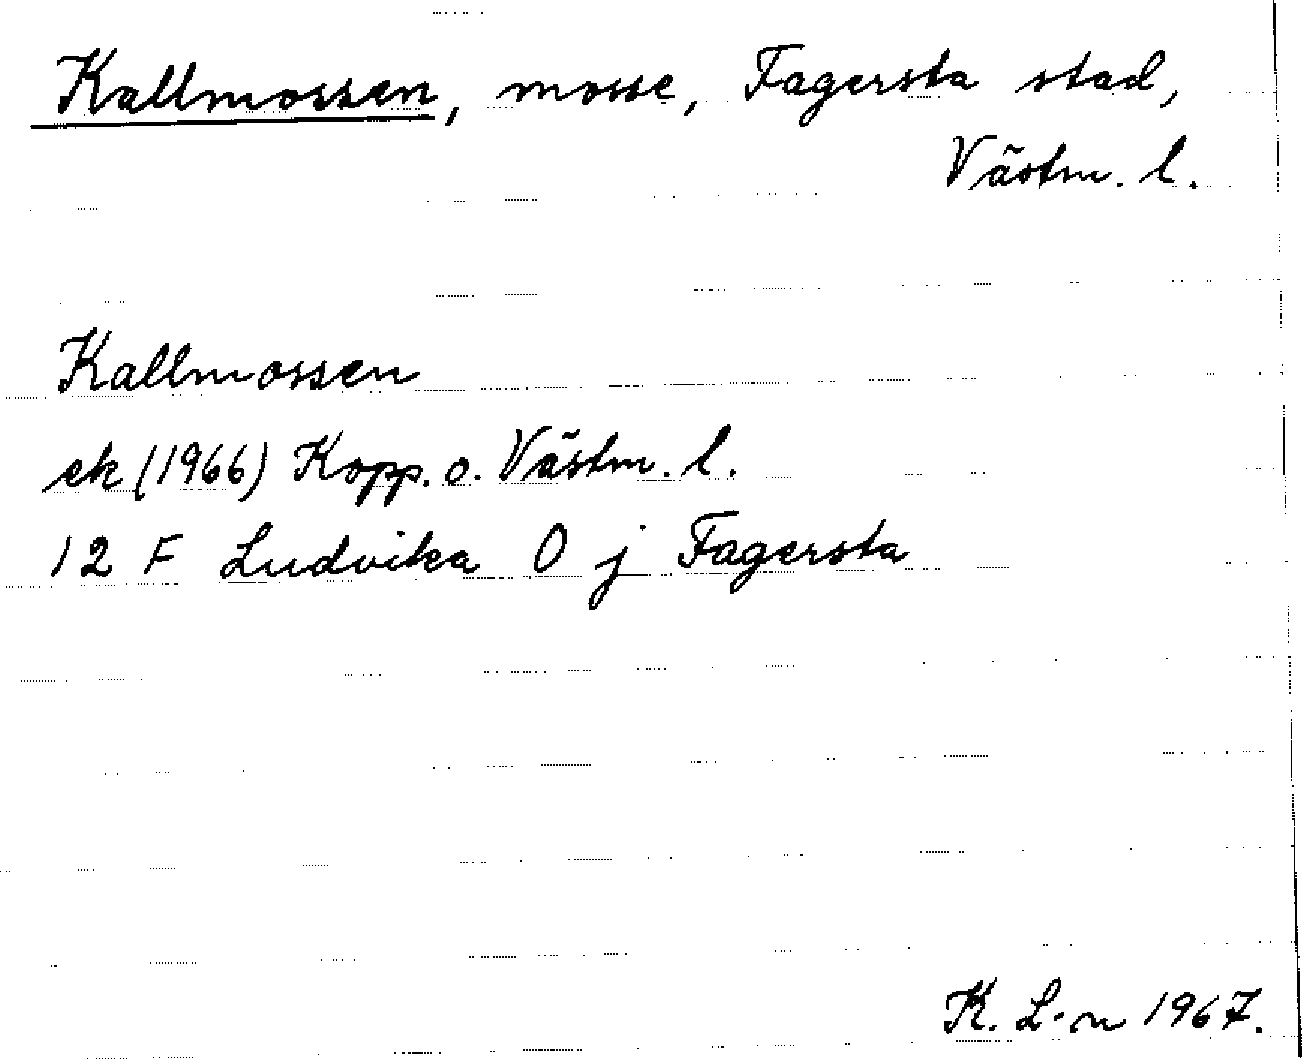 Kallmossen, mosse, Fagersta stad,
Västm. l.
Kallmossen
ek (1966) Kopp. o. Västm. l.
12 F Ludvika 0 j Fagersta
K. L-n 1967.